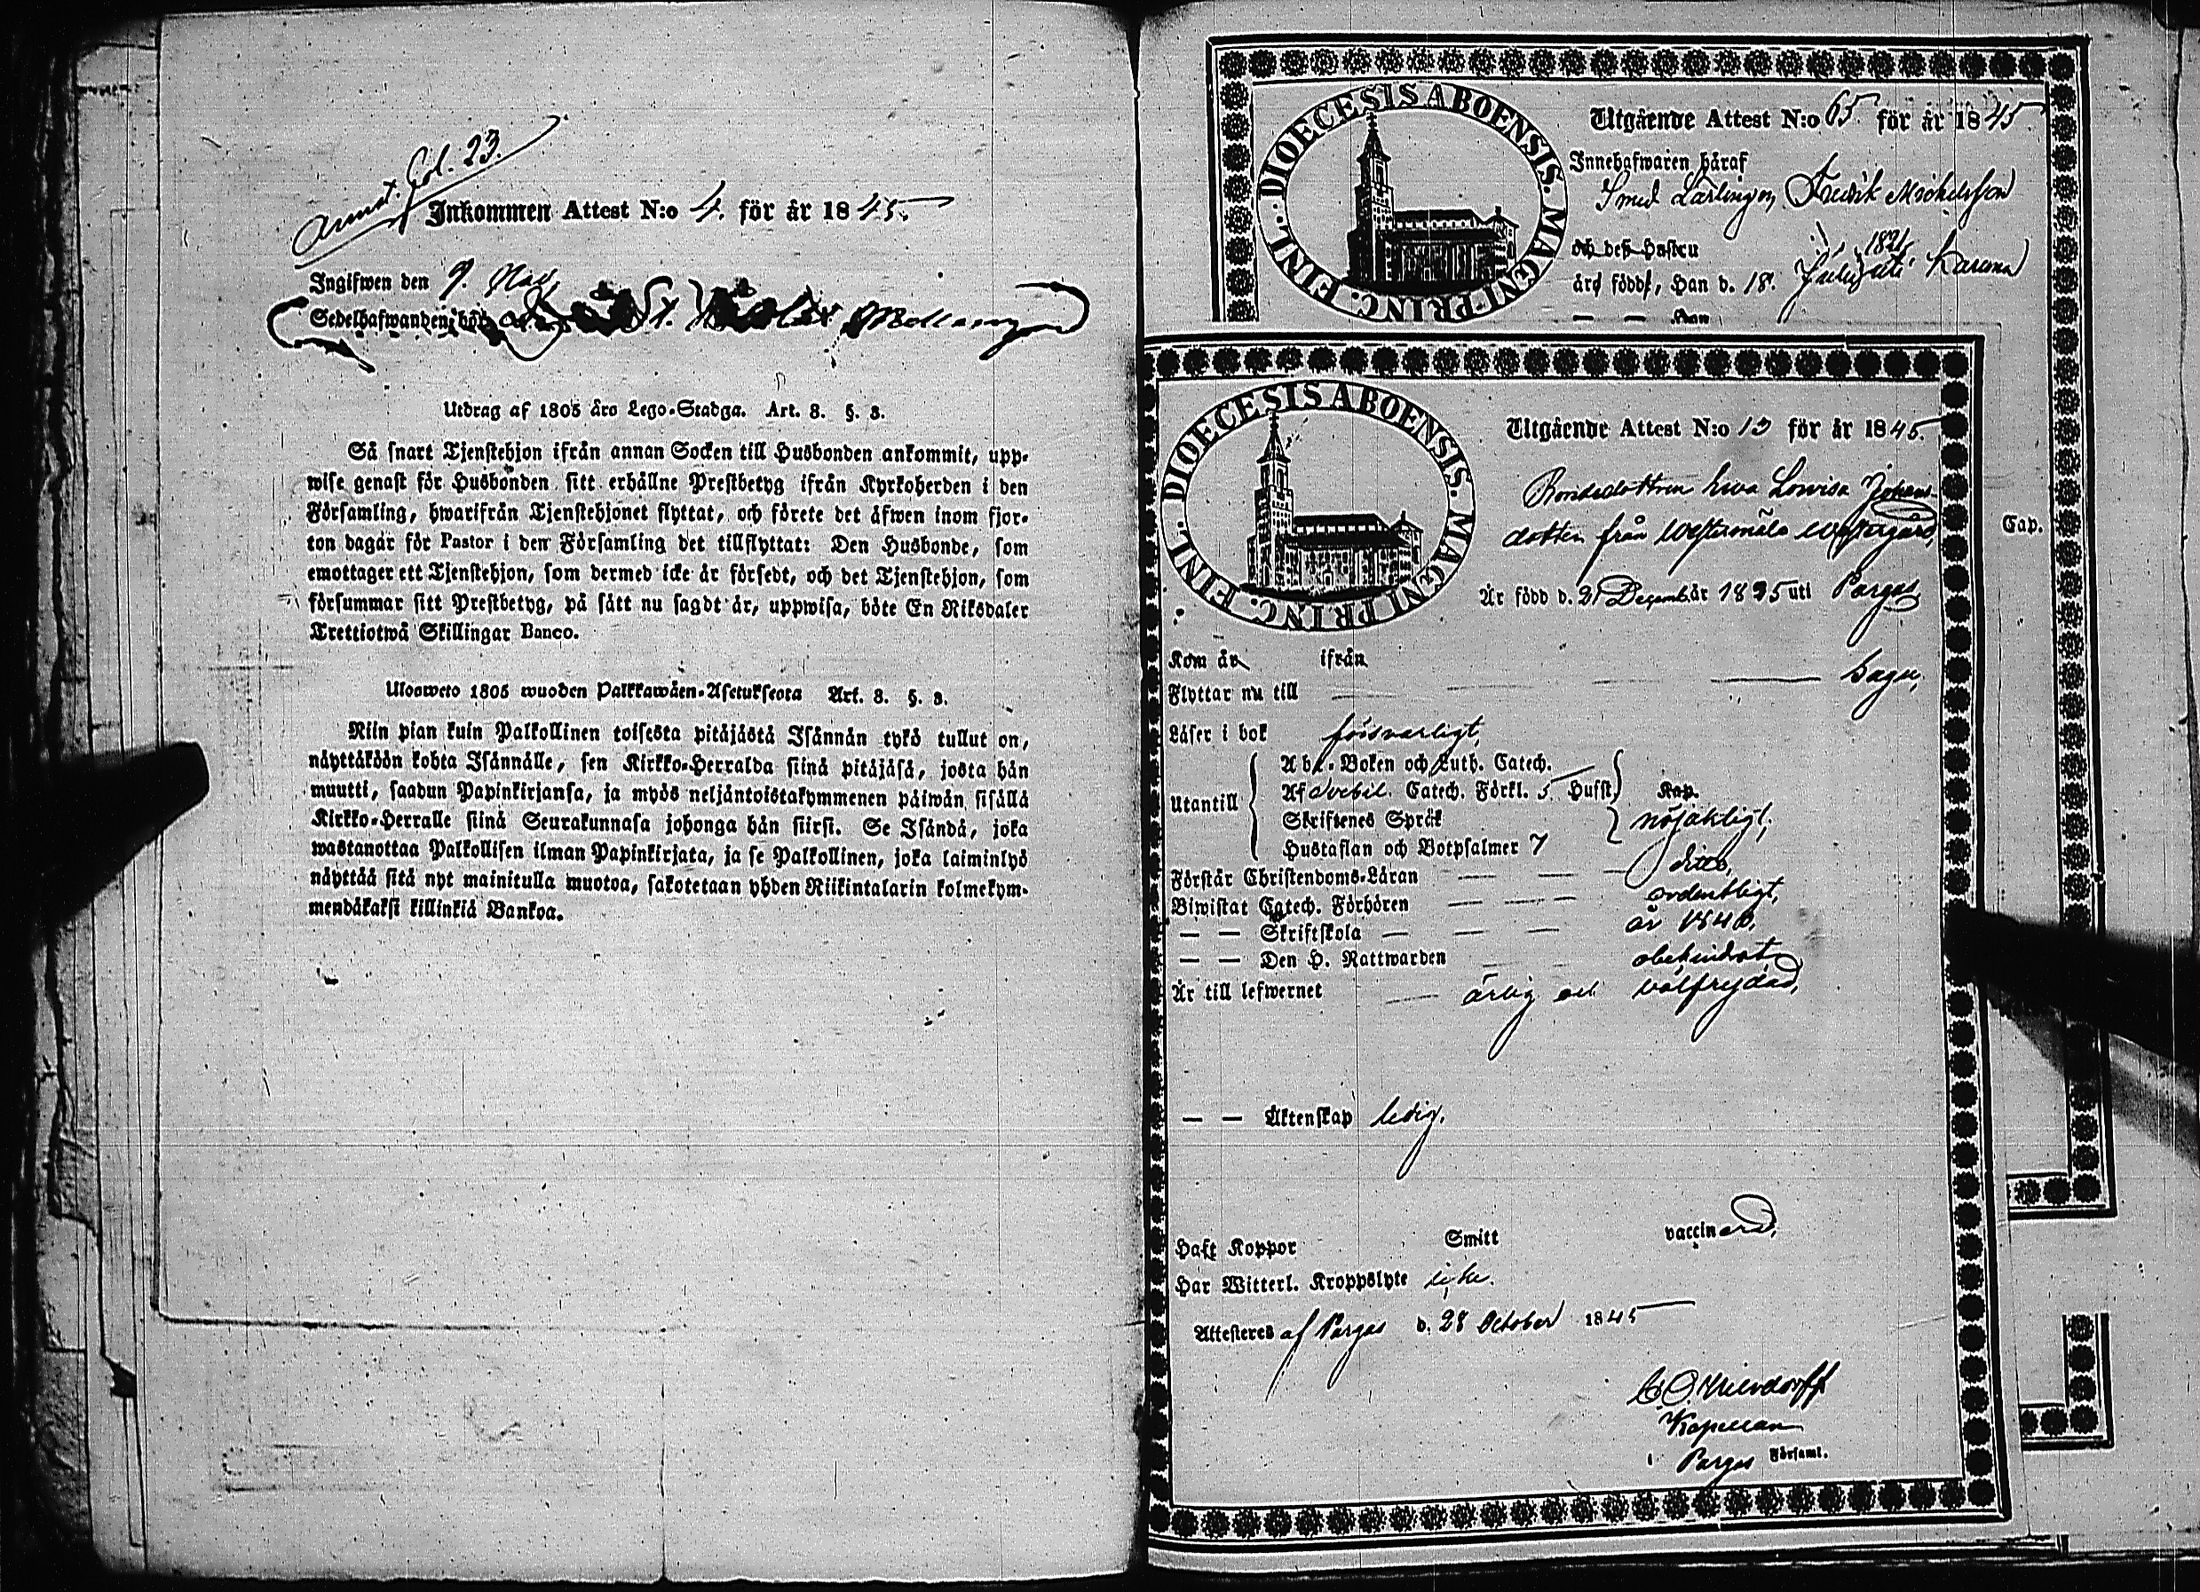 annot. Fol. 23.
Inkommen Attest N:o 4. för år 1845.
Ingifwen den 9. Nov.
Sedelhafwanden bör
Utdrag af 1805 års Lego-Stadga. Art. 8. §. 3.
Så snart Tjenstehjon ifrån annan Socken till Husbonden ankommit, upp-
wise genast för Husbonden sitt erhållne Prestbetyg ifrån Kyrkoherden i den
Församling, hwarifrån Tjenstehjonet flyttat, och förete det äfwen inom fjor-
ton dagar för Pastor i den Församling det tillflyttat: Den Husbonde, som
emottager ett Tjenstehjon, som dermed icke är försedt, och det Tjenstehjon, som
försummar sitt Prestbetyg, på sätt nu sagdt är, uppwisa, böte En Riksdaler
Trettiotwå Skillingar Banco.
Ulosweto 1805 wuoden Palkkawäen-Asetuksesta Art. 8. §. 3.
Niin pian kuin Palkollinen toisesta pitäjästä Isännän tykö tullut on,
näyttäköön kohta Isännälle, sen Kirkko-Herralda siinä pitäjäsä, josta hän
muutti, saadun Papinkirjansa, ja myös neljäntoistakymmenen päiwän sisällä
Kirkko-Herralle siinä Seurakunnasa johonga hän siirsi. Se Isändä, joka
wastanottaa Palkollisen ilman Papinkirjata, ja se Palkollinen, joka laiminlyö
näyttää sitä nyt mainitulla muotoa, sakotetaan yhden Riikintalarin kolmekym-
mendäkaksi killinkiä Bankoa.
DIOECESIS ABOENSIS. MAGNI PRINC. FINL.
Utgående Attest N:o 65 för år 1845
Innehafwaren häraf
Smed Lärlingen Fredrik Michelsson
och deß Hustru
1821
äro födde, Han d. 18. Julii uti Karuna
— — Hon
Cap.
DIOECESIS ABOENSIS. MAGNI PRINC. FINL.
Utgående Attest N:o 13 för år 1845.
Bondedottren Eva Lovisa Johans-
dotter från Westermäla Westergård,
Är född d. 21 Decemb. år 1825 uti Pargas
Kom år ifrån
Flyttar nu till — — — — Sagu,
Läser i bok försvarligt,
Utantill
Abc-Boken och Luth. Catech.
Af Svebil. Catech. Förkl. 5. Hufst. Kap.
Skriftenes Språk nöjaktigt,
Hustaflan och Botpsalmer 7
Förstår Christendoms-Läran — — — ditto,
Biwistat Catech. Förhören — — — ordentligt,
— — Skriftskola — — — år 1840,
— — Den H. Nattwarden — — obehindrat,
Är till lefwernet — ärlig och välfrejdad,
— — Äktenskap ledig.
Haft Koppor Smitt vaccinerad,
Har Witterl. Kroppslyte icke.
Attesteres af Pargas d. 28 October 1845
Kapellan
i Pargas Församl.